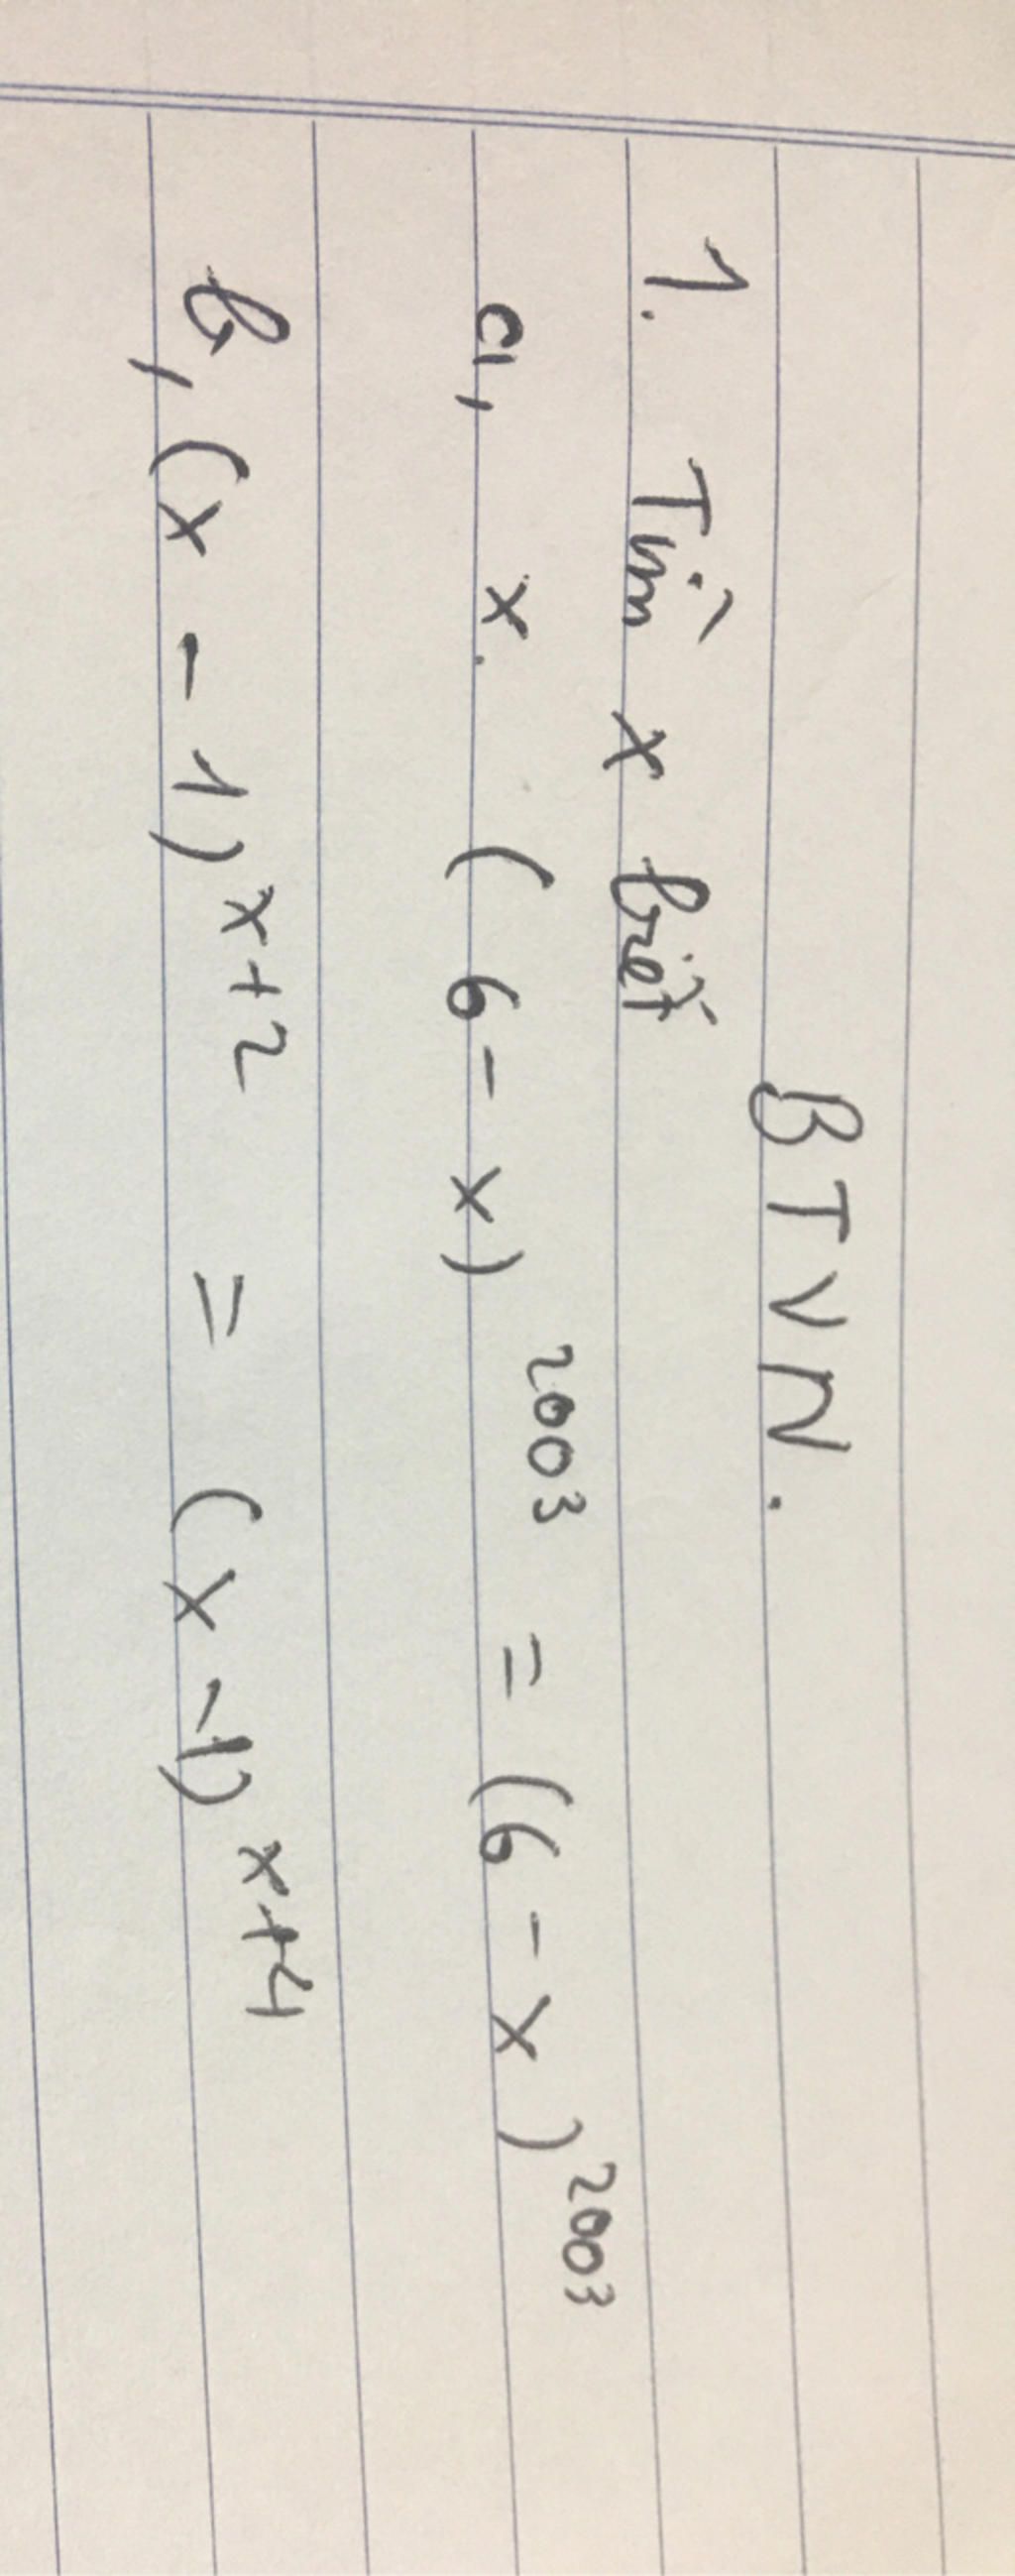 BTVN.
1. Tìm x biết
a, x. (6 - x)²⁰⁰³ = (6 - x)²⁰⁰³
b, (x - 1)ˣ⁺² = (x - 1)ˣ⁺⁴